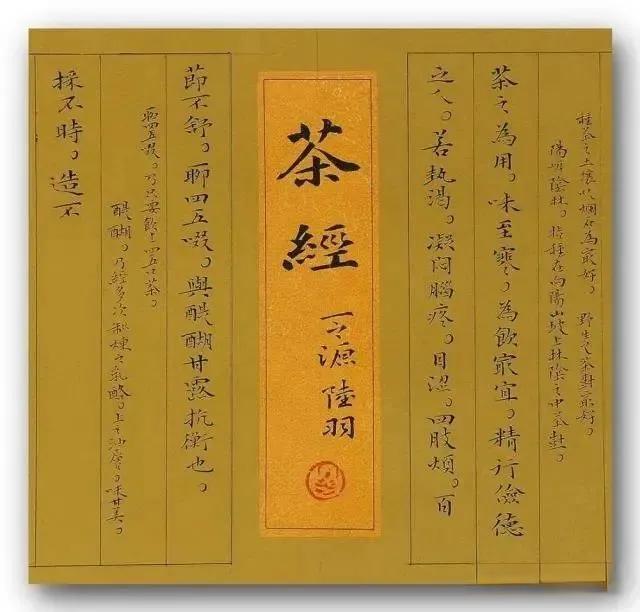 種茶之土壤以爛石為最好。野生之茶對最好。
陽崖陰林。指種在向陽山坡上林陰之中茶
茶之為用。味至寒。為飲最宜。精行儉德
之人。若熱渴。凝悶腦疼。目澀。四肢煩。百
茶經
一之源 陸羽
節不舒。聊四五啜。與醍醐甘露抗衡也。
聊四五啜。乃只要飲上四五口茶。
醍醐。乃經多次制煉之乳酪。上之油層。味甘美。
採不時。造不